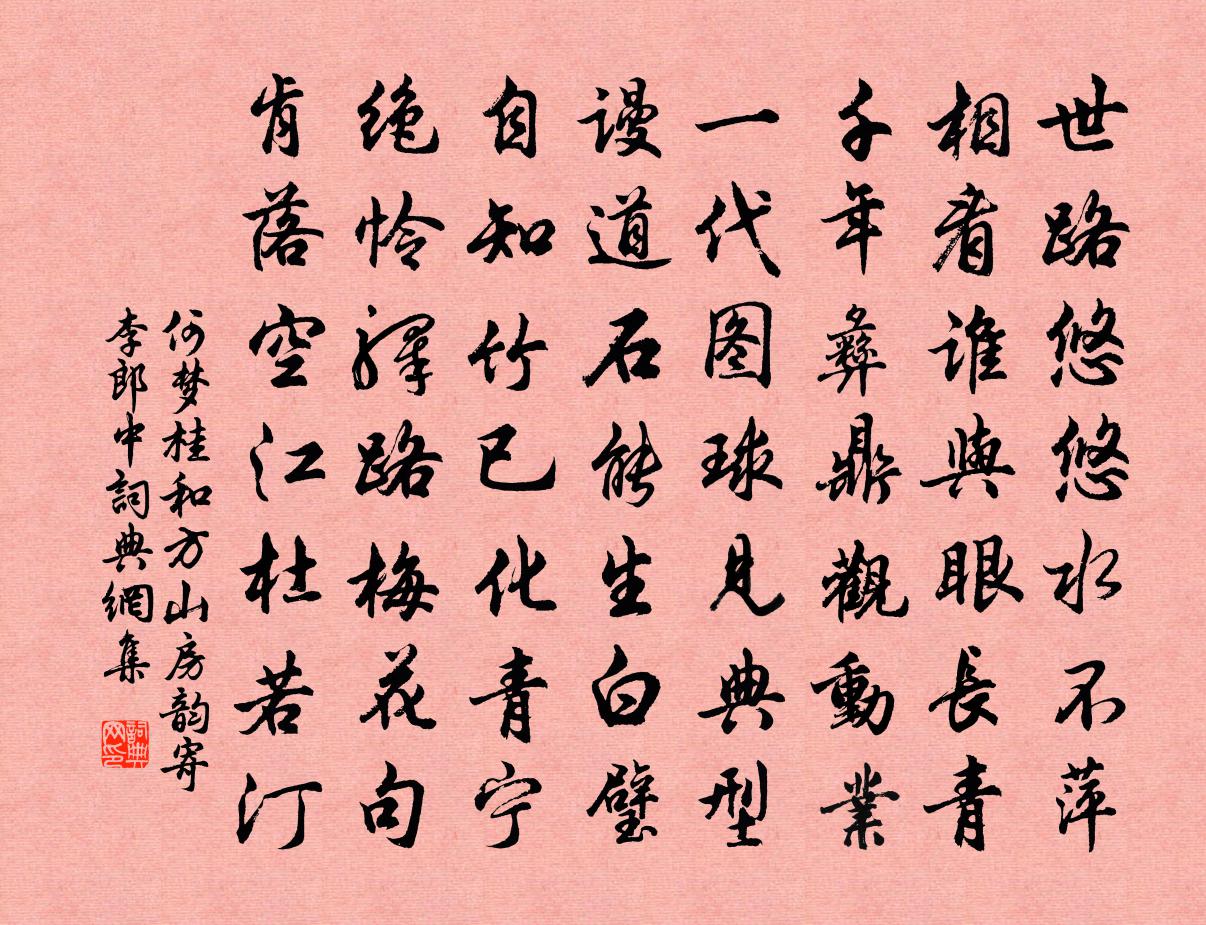 世路悠悠水不萍
相看谁與眼長青
千年彝鼎觀動業
一代图球見典型
谩道石能生白璧
自知竹已化青宁
绝怜驛路梅花句
肯落空江杜若汀
何梦桂和方山房韵寄
李郎中詞典網集
詞典
网印